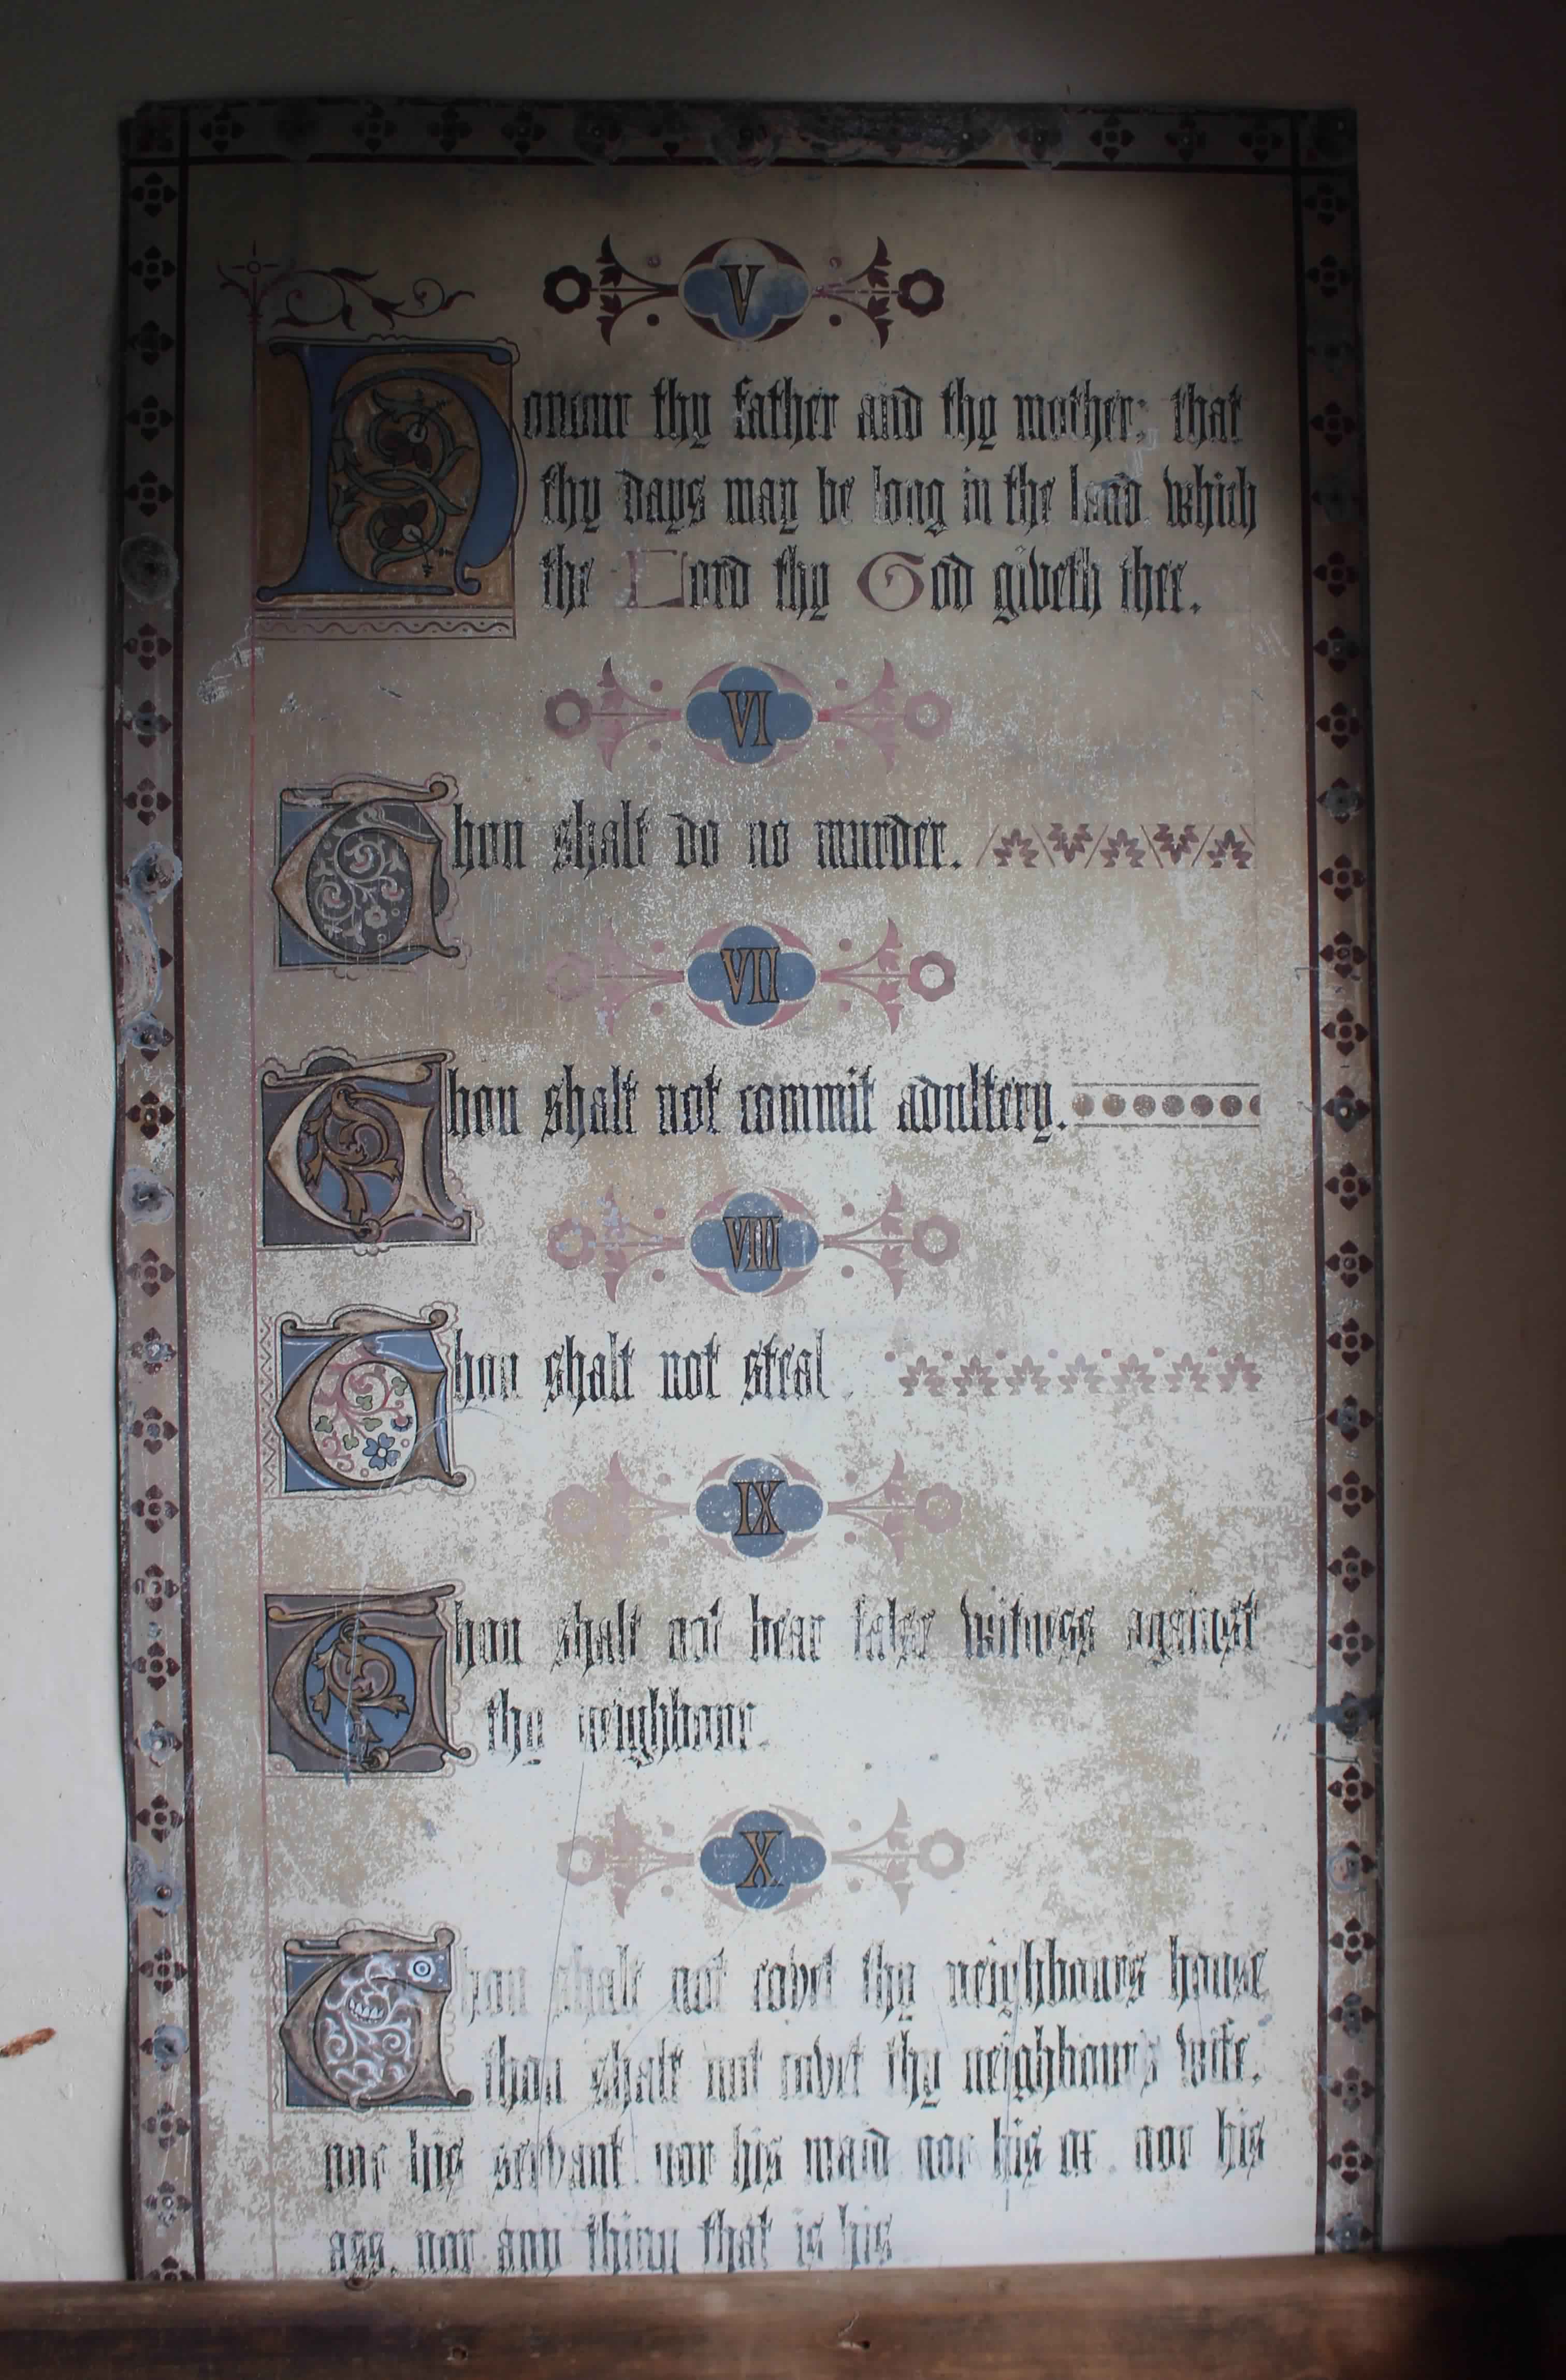 V
Honour thy father and thy mother; that
thy days may be long in the land which
the Lord thy God giveth thee.
VI
Thou shalt do no murder.
VII
Thou shalt not commit adultery.
VIII
Thou shalt not steal.
IX
Thou shalt not bear false witness against
thy neighbour.
X
Thou shalt not covet thy neighbours house
thou shalt not covet thy neighbour's wife,
nor his servant, nor his maid nor his ox, nor his
ass, nor any thing that is his